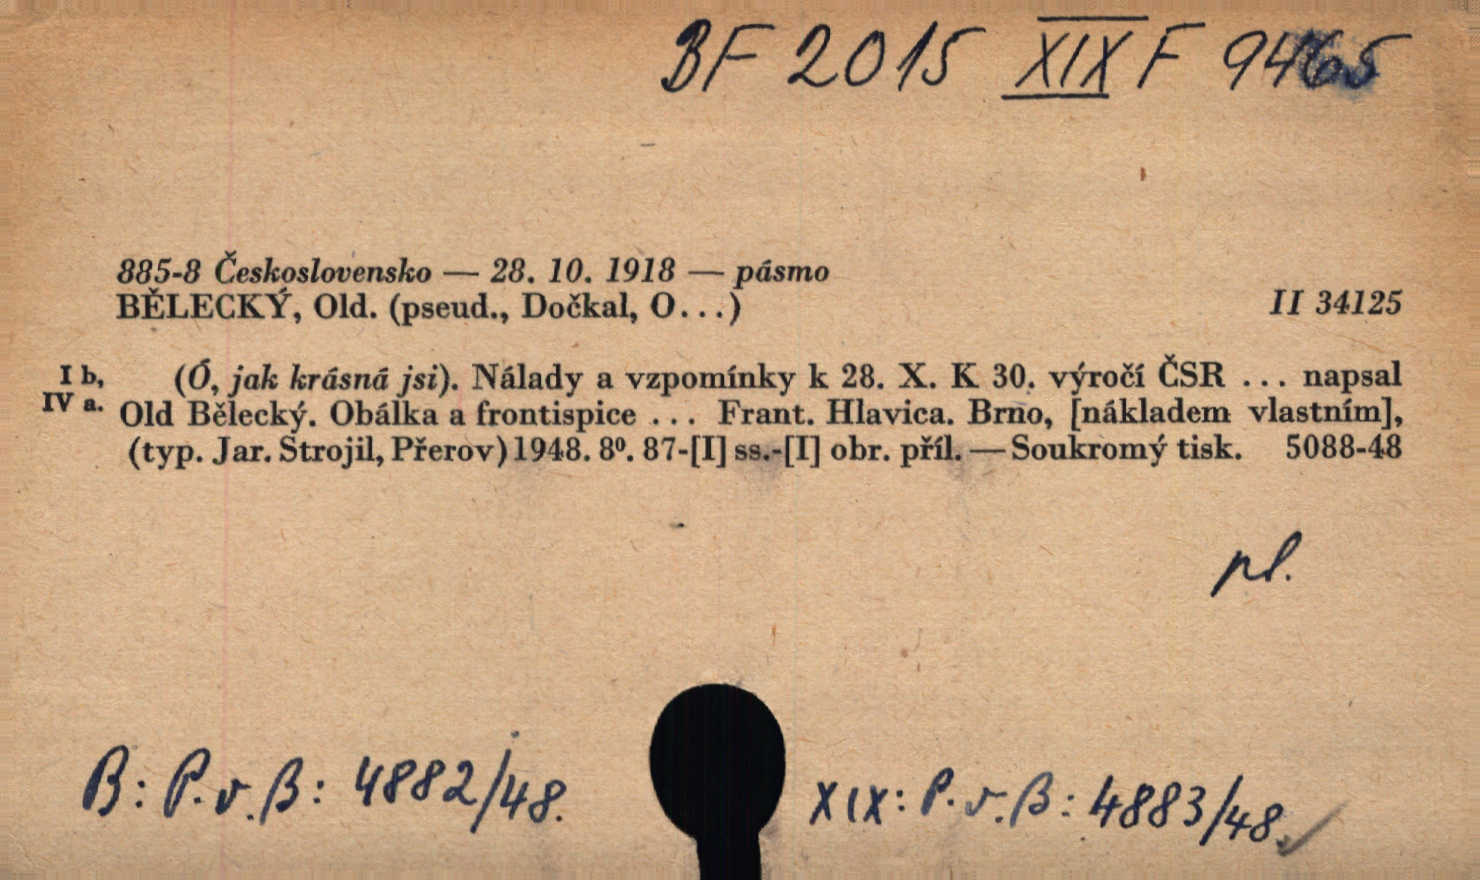 BF 2015 XIX F 9465
885-8 Československo — 28. 10. 1918 — pásmo
BĚLECKÝ, Old. (pseud., Dočkal, O...) II 34125
I b, (Ó, jak krásná jsi). Nálady a vzpomínky k 28. X. K 30. výročí ČSR ... napsal
IV a. Old Bělecký. Obálka a frontispice ... Frant. Hlavica. Brno, [nákladem vlastním],
(typ. Jar. Strojil, Přerov) 1948. 8⁰. 87-[I] ss.-[I] obr. příl. — Soukromý tisk. 5088-48
pl.
B: P. v. B: 4882/48. XIX: P. v. B: 4883/48.